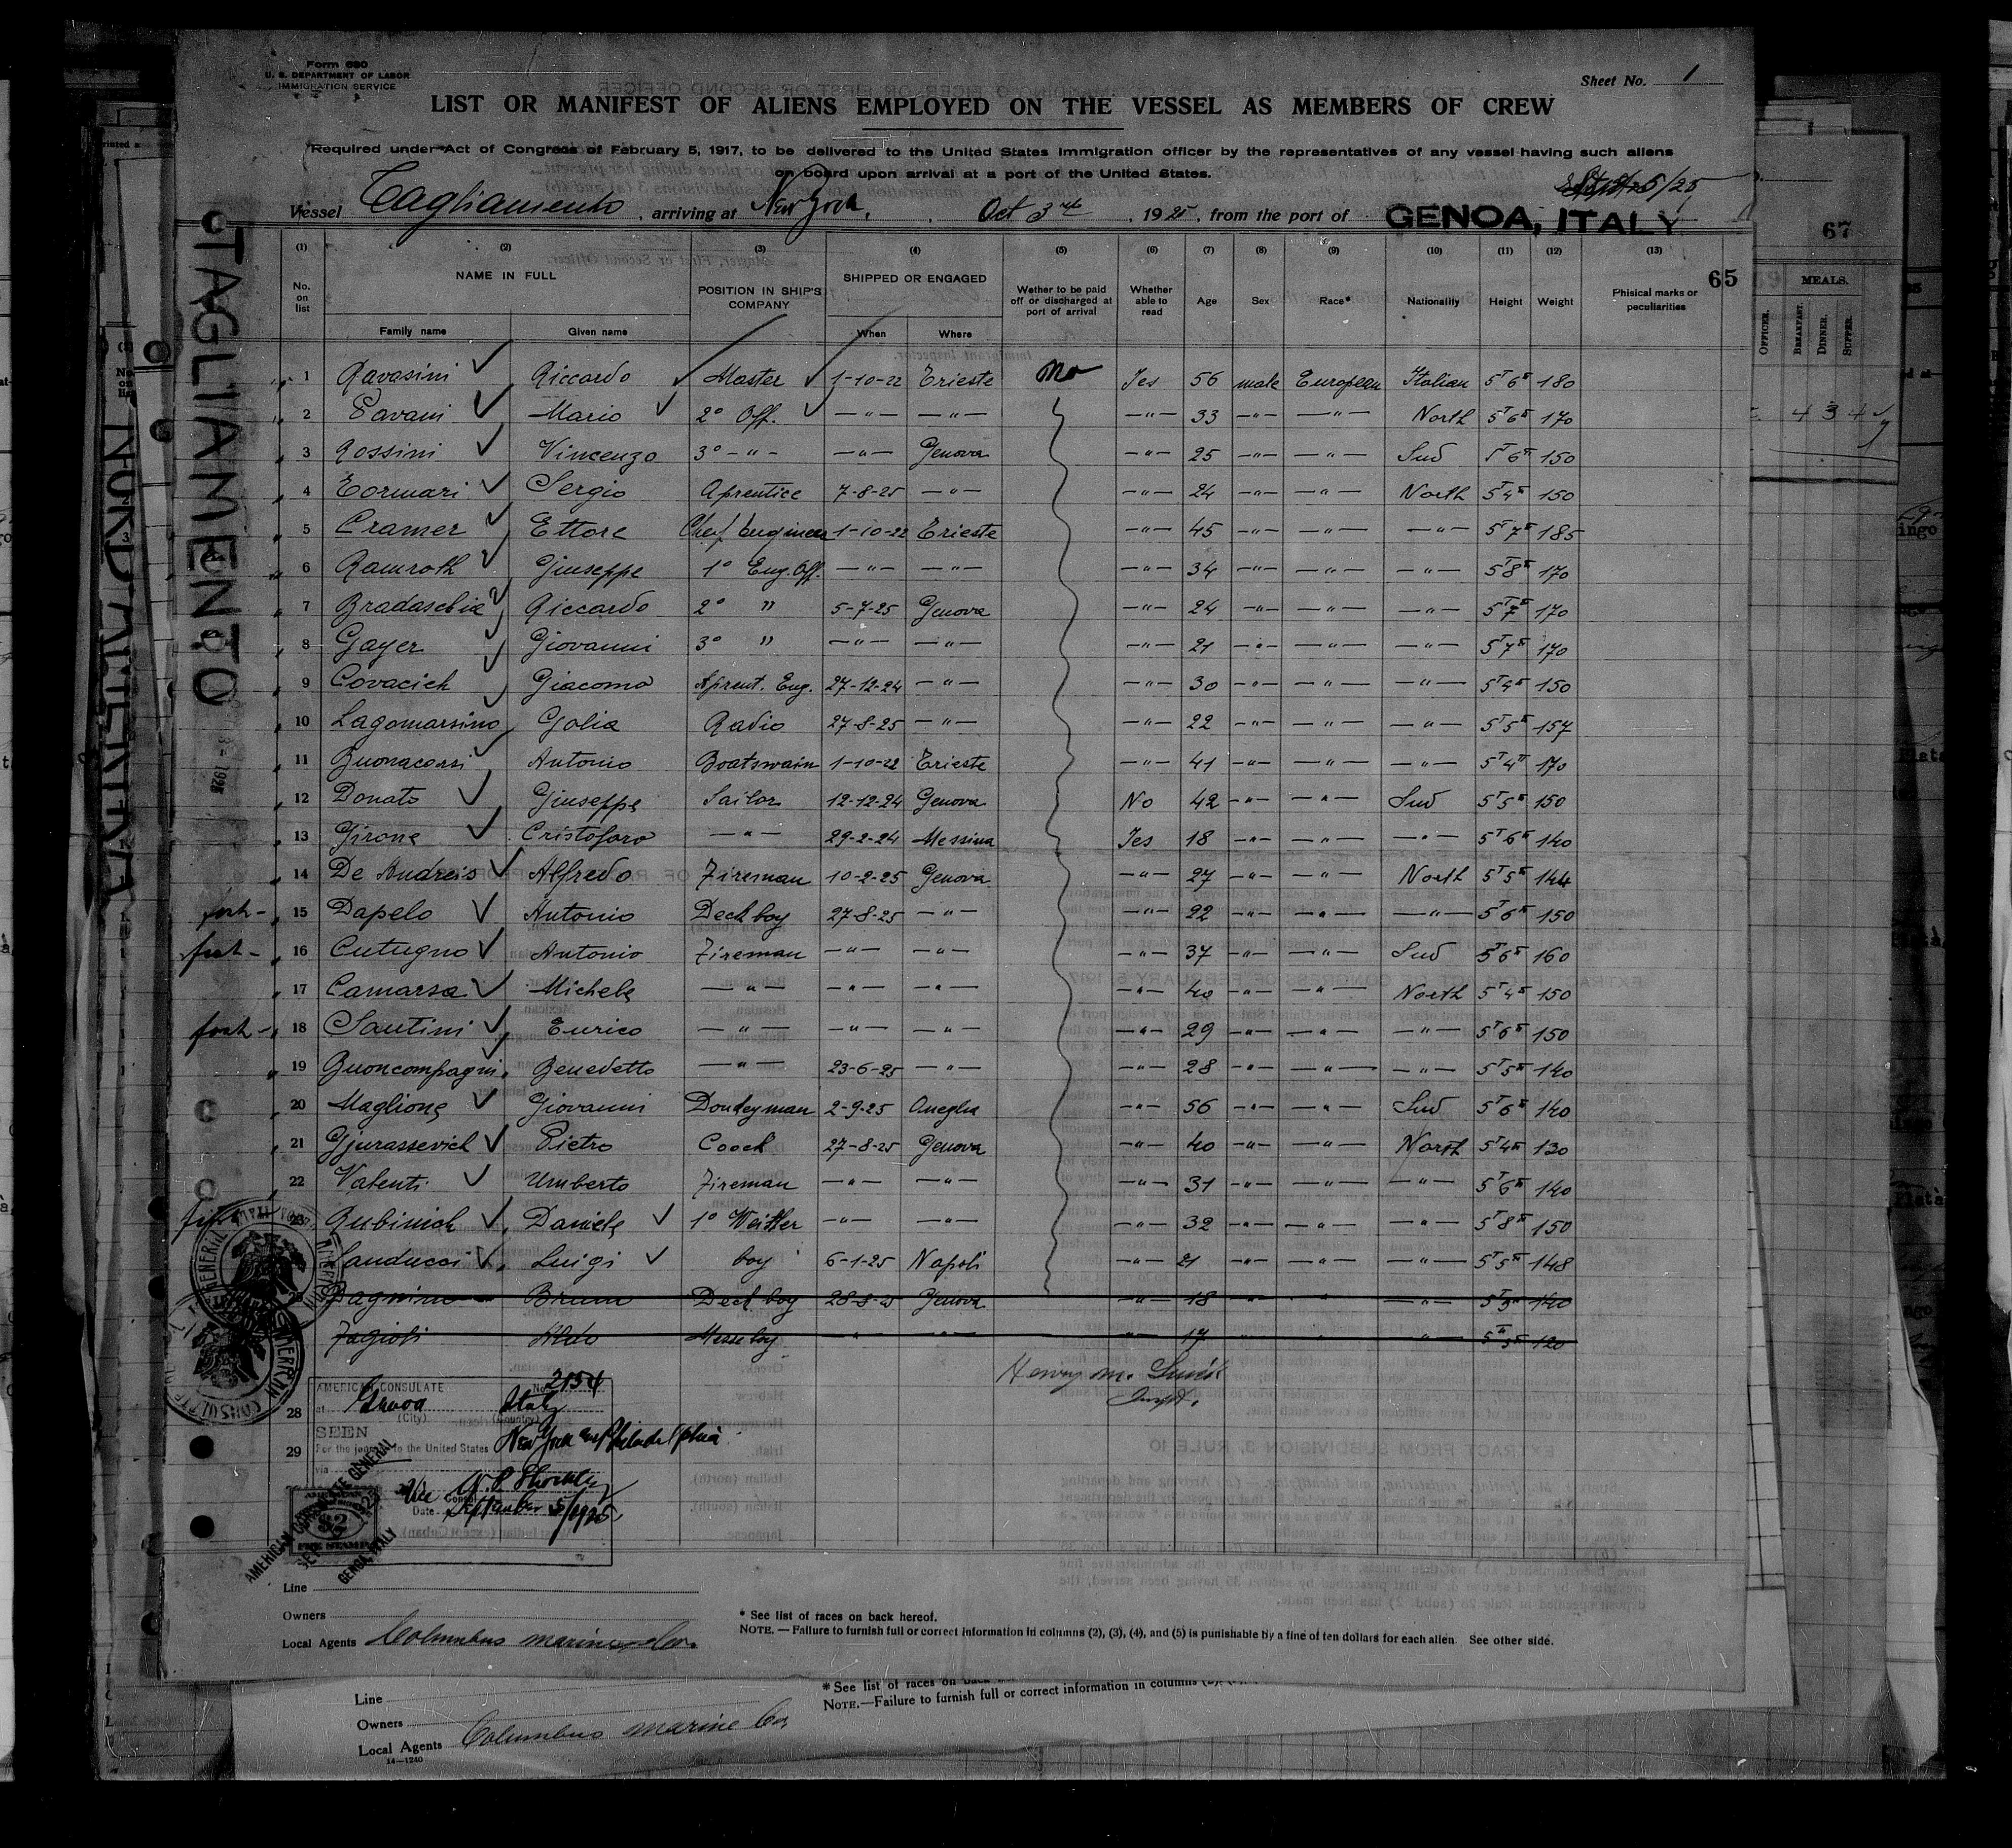 Form 680
U. S. DEPARTMENT OF LABOR
IMMIGRATION SERVICE
Sheet No. 1
LIST OR MANIFEST OF ALIENS EMPLOYED ON THE VESSEL AS MEMBERS OF CREW
Required under Act of Congress of February 5, 1917, to be delivered to the United States Immigration officer by the representatives of any vessel having such aliens
on board upon arrival at a port of the United States.
Sept 5/25
Vessel Tagliamento, arriving at New York, Oct 3rd, 1925, from the port of GENOA, ITALY
TAGLIAMENTO
65
67
MEALS.
OFFICER. BREAKFAST. DINNER. SUPPER.
(1) (2) (3) (4) (5) (6) (7) (8) (9) (10) (11) (12) (13)
No. on list NAME IN FULL Family name Given name POSITION IN SHIP'S COMPANY SHIPPED OR ENGAGED When Where Wether to be paid off or discharged at port of arrival Whether able to read Age Sex Race* Nationality Height Weight Phisical marks or peculiarities
1 Ravasini Riccardo Master 1-10-22 Trieste no Yes 56 male European Italian 5' 6" 180
2 Pavani Mario 2° Off. —"— —"— —"— 33 —"— —"— North 5' 6" 170
3 Rossini Vincenzo 3° —"— —"— Genova —"— 25 —"— —"— Sud 5' 6" 150
4 Tormari Sergio Aprentice 7-8-25 —"— —"— 24 —"— —"— North 5' 4" 150
5 Cramer Ettore Chef Engineer 1-10-22 Trieste —"— 45 —"— —"— —"— 5' 7" 185
6 Ramroth Giuseppe 1° Eng. Off. —"— —"— —"— 34 —"— —"— —"— 5' 8" 170
7 Bradaschia Riccardo 2° " 5-7-25 Genova —"— 24 —"— —"— —"— 5' 7" 170
8 Gayer Giovanni 3° " —"— —"— —"— 21 —"— —"— —"— 5' 7" 170
9 Covacich Giacomo Aprent. Eng. 27-12-24 —"— —"— 30 —"— —"— —"— 5' 4" 150
10 Lagomarsino Golia Radio 27-8-25 —"— —"— 22 —"— —"— —"— 5' 5" 157
11 Buonacorsi Antonio Boatswain 1-10-22 Trieste —"— 41 —"— —"— —"— 5' 4" 170
12 Donato Giuseppe Sailor 12-12-24 Genova No 42 —"— —"— Sud 5' 5" 150
13 Girone Cristoforo —"— 29-2-24 Messina Yes 18 —"— —"— —"— 5' 6" 140
14 De Andreis Alfredo Fireman 10-2-25 Genova —"— 27 —"— —"— North 5' 5" 144
15 Dapelo Antonio Deck boy 27-8-25 —"— —"— 22 —"— —"— —"— 5' 6" 150
16 Cutugno Antonio Fireman —"— —"— —"— 37 —"— —"— Sud 5' 6" 160
17 Camarsa Michele —"— —"— —"— —"— 40 —"— —"— North 5' 4" 150
18 Santini Enrico —"— —"— —"— —"— 29 —"— —"— —"— 5' 6" 150
19 Buoncompagni Benedetto —"— 23-6-25 —"— —"— 28 —"— —"— —"— 5' 5" 140
20 Maglione Giovanni Donkeyman 2-9-25 Oneglia —"— 56 —"— —"— Sud 5' 6" 140
21 Gjurassevich Pietro Coock 27-8-25 Genova —"— 40 —"— —"— North 5' 4" 130
22 Valenti Umberto Fireman —"— —"— —"— 31 —"— —"— —"— 5' 6" 140
Rubinich Daniele 1° Weitter —"— —"— —"— 32 —"— —"— —"— 5' 8" 150
Landucci Luigi boy 6-1-25 Napoli —"— 21 —"— —"— —"— 5' 5" 148
Pagnini Bruno Deck boy 28-8-25 Genova —"— 18 —"— —"— —"— 5' 3" 140
Fagioli Aldo Messe boy " " —"— 17 " " " 5' 5" 120
Henry M. Smith
Inspt.
28
29
AMERICAN CONSULATE No. 2154
at Genoa Italy
(City) (Country)
SEEN
For the journey to the United States New York and Philadelphia
via
Vice Consul
Date September 5/1925
AMERICAN CONSULATE GENERAL
GENOA, ITALY
$2
FEE STAMP
Line
Owners
Local Agents Columbus marine Cor.
* See list of races on back hereof.
NOTE. — Failure to furnish full or correct information in columns (2), (3), (4), and (5) is punishable by a fine of ten dollars for each alien. See other side.
Line
Owners
Local Agents Columbus marine Co
14—1240
* See list of races on back
NOTE.—Failure to furnish full or correct information in columns